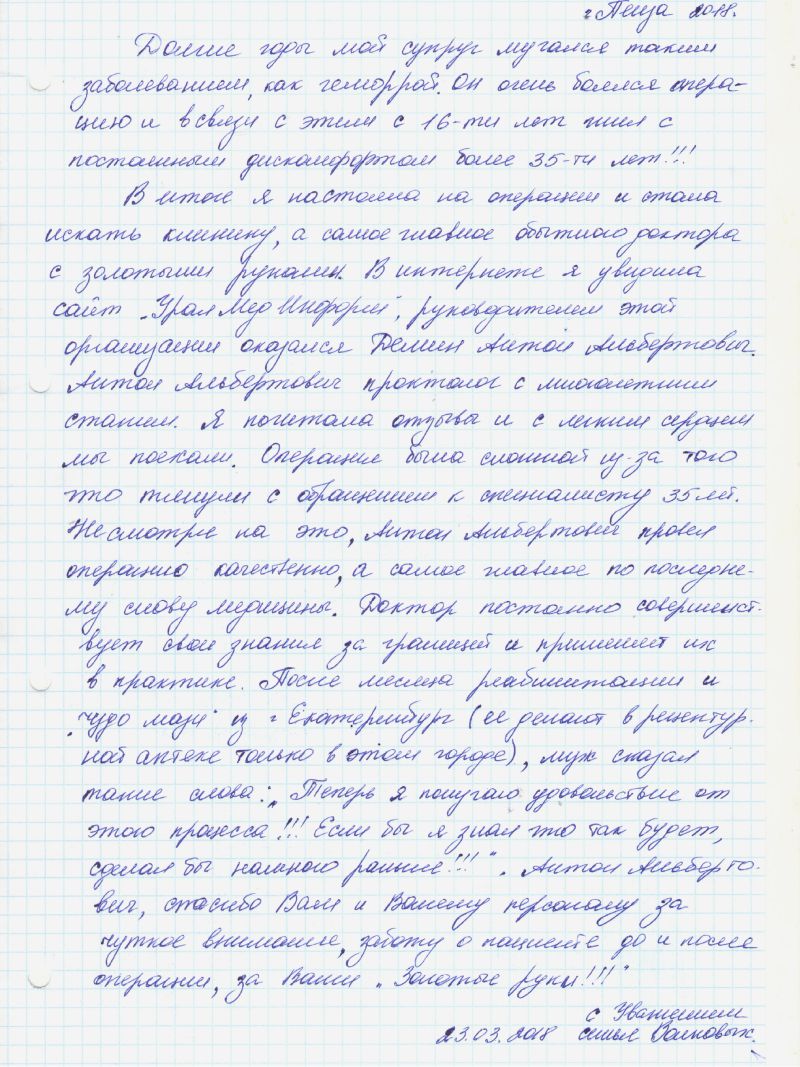 г Пенза 2018.
Долгие годы мой супруг мучался таким
заболеванием, как геморрой. Он очень боялся опера-
цию и в связи с этим с 16-ти лет жил с
постоянным дискомфортом более 35-ти лет!!!
В итоге я настояла на операции и стала
искать клинику, а самое главное опытного доктора
с золотыми руками. В интернете я увидила
сайт „УралМедИнформ", руководителем этой
организации оказался Демин Антон Альбертович.
Антон Альбертович проктолог с многолетним
стажем. Я почитала отзывы и с легким сердцем
мы поехали. Операция была сложной из-за того
что тянули с обращением к специалисту 35 лет.
Не смотря на это, Антон Альбертович провел
операцию качественно, а самое главное по последне-
му слову медицины. Доктор постоянно совершенст-
вует свои знания за границей и применяет их
в практике. После месяца реабилитации и
„чудо мази" из г Екатеринбург (ее делают в рецептур-
ной аптеке только в этом городе), муж сказал
такие слова: „Теперь я получаю удовольствие от
этого процесса!!! Если бы я знал что так будет,
сделал бы намного раньше!!!". Антон Альберто-
вич, спасибо Вам и Вашему персоналу за
чуткое внимание, заботу о пациенте до и после
операции, за Ваши „Золотые руки!!!"
с Уважением
23.03.2018 семья Волновых.